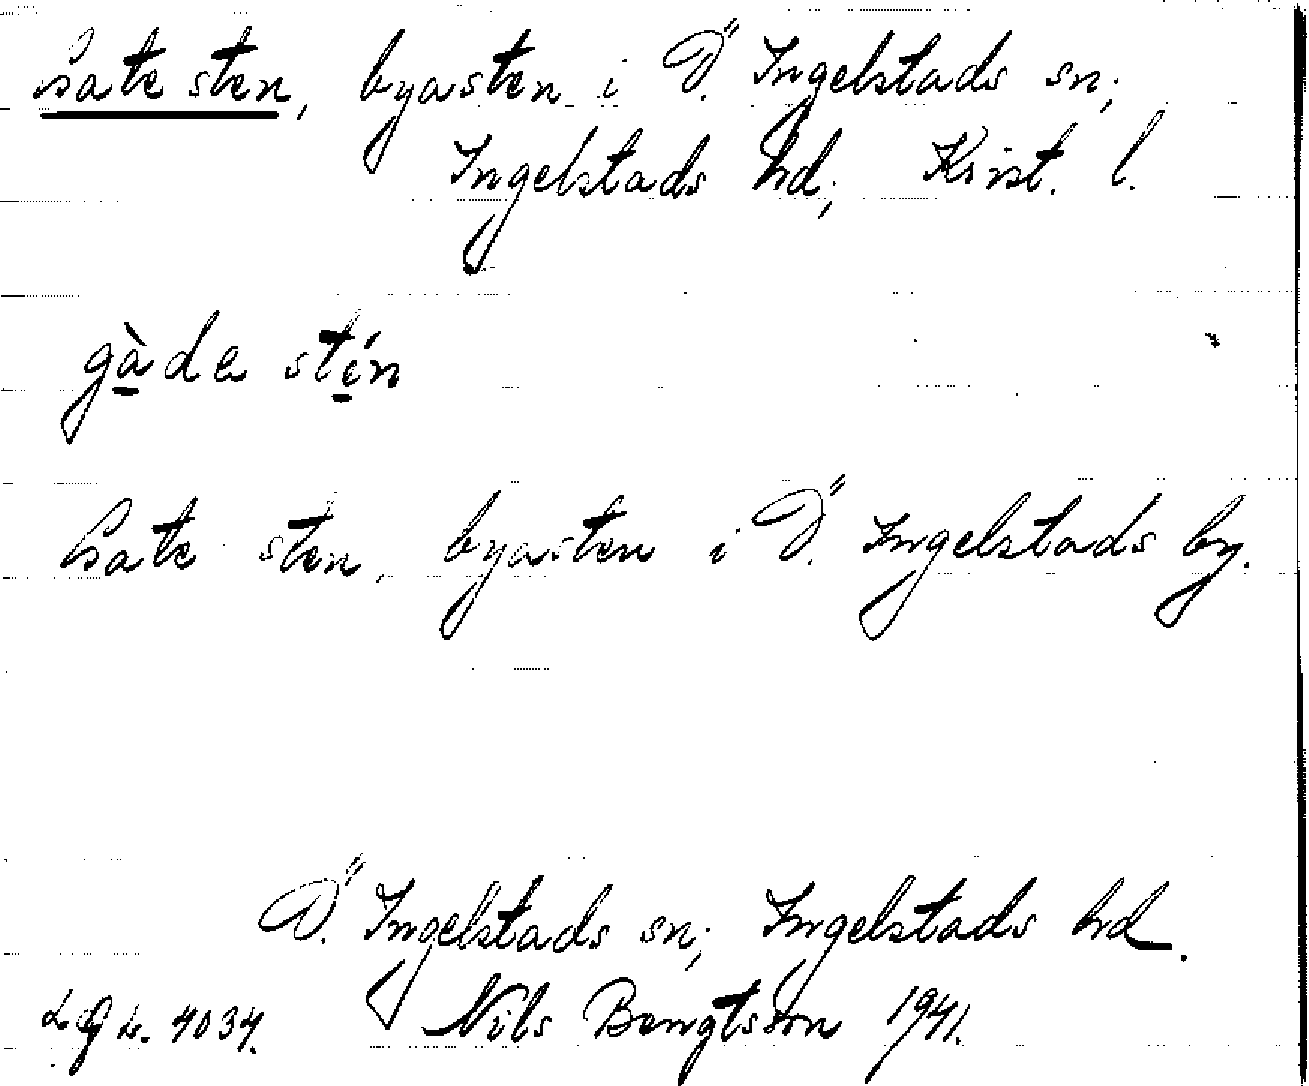 Gate sten, byasten i Ö. Ingelstads sn;
Ingelstads hd; Krist. l.
gàde stén
Gate sten, byasten i Ö. Ingelstads by.
Ö. Ingelstads sn; Ingelstads hd.
4034. Nils Bengtsson 1941.